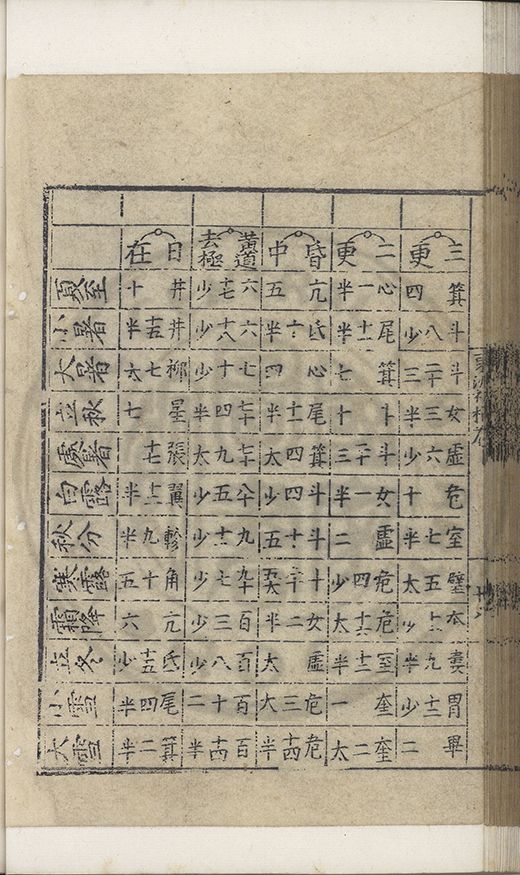 日在 黃道去極 昏中 二更 三更
夏至 井十 六十七少 亢五 心一半 箕四
小暑 井二十五半 六十八少 氐半 尾十一半 斗八少
大暑 柳七太 七十少 心四 箕七 斗二十三
立秋 星七 七十四半 尾半 斗十 女三半
處暑 張十七 七十九太 箕四太 斗二十三 虛六少
白露 翼半 八十五少 斗四 女一半 危十
秋分 軫九半 九十一少 斗十五 虛二 室七半
寒露 角十五 九十七少 危四少 壁五太
霜降 亢六 百三少 女二半 危十六太
立冬 氐十五少 百八少 虛太 室十二半 婁九半
小雪 尾四半 百十二 危三太 奎一 胃十二少
大雪 箕二半 百十四半 危十四半 奎二太 畢二